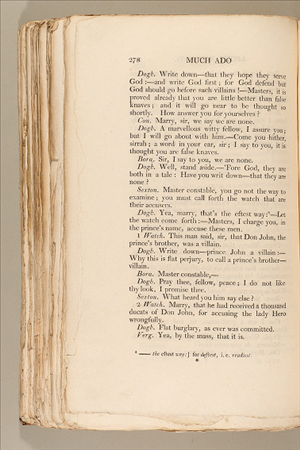 278 MUCH ADO
Dogb. Write down—that they hope they serve
God:—and write God first; for God defend but
God should go before such villains!—Masters, it is
proved already that you are little better than false
knaves; and it will go near to be thought so
shortly. How answer you for yourselves?
Con. Marry, sir, we say we are none.
Dogb. A marvellous witty fellow, I assure you;
but I will go about with him.—Come you hither,
sirrah; a word in your ear, sir; I say to you, it is
thought you are false knaves.
Bora. Sir, I say to you, we are none.
Dogb. Well, stand aside.—'Fore God, they are
both in a tale: Have you writ down—that they are
none?
Sexton. Master constable, you go not the way to
examine; you must call forth the watch that are
their accusers.
Dogb. Yea, marry, that's the eftest way:⁸—Let
the watch come forth:—Masters, I charge you, in
the prince's name, accuse these men.
1 Watch. This man said, sir, that Don John, the
prince's brother, was a villain.
Dogb. Write down—prince John a villain:—
Why this is flat perjury, to call a prince's brother—
villain.
Bora. Master constable,—
Dogb. Pray thee, fellow, peace; I do not like
thy look, I promise thee.
Sexton. What heard you him say else?
2 Watch. Marry, that he had received a thousand
ducats of Don John, for accusing the lady Hero
wrongfully.
Dogb. Flat burglary, as ever was committed.
Verg. Yea, by the mass, that it is.
⁸ —— the eftest way:] for deftest, i. e. readiest.